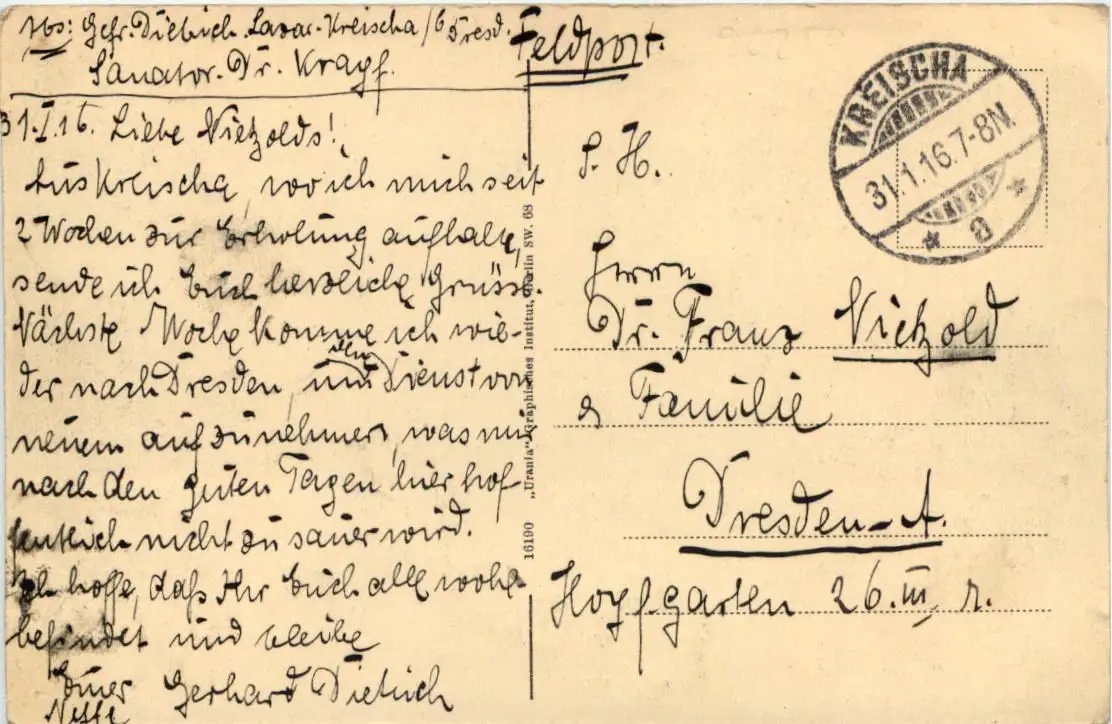 Abs: Gefr. Dietrich. Lazar. Kreischa/b Dresd.
Sanator. Dr. Krapf.
Feldpost.
31.I.16. Liebe Nietzolds!
Aus Kreischa, wo ich mich seit
2 Wochen zur Erholung aufhalte,
sende ich Euch herzliche Grüsse.
Nächste Woche komme ich wie-
der nach Dresden, um den Dienst von
neuem aufzunehmen, was mir
nach den guten Tagen hier hof-
fentlich nicht zu sauer wird.
Ich hoffe, daß Ihr Euch alle wohl
befindet und bleibe
Euer Gerhard Dietrich
Neffe
16190 „Urania" Graphisches Institut, Berlin SW. 68
KREISCHA
31.1.16.7-8N.
* a *
S. H.
Herrn
Dr. Franz Nietzold
& Familie
Dresden-A.
Hopfgarten 26.III, r.